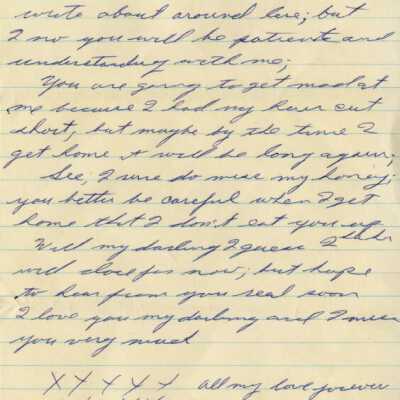 wrote about around here; but
I no you will be patient and
understanding with me;
You are going to get mad at
me because I had my hair cut
short, but maybe by the time I
get home it will be long again;
Gee; I sure do miss my honey;
you better be careful when I get
home that I don't eat you up
Well my darling I guess I
will close for now; but hope
to hear from you real soon
I love you my darling and I miss
you very much
X X X X X all my love forever